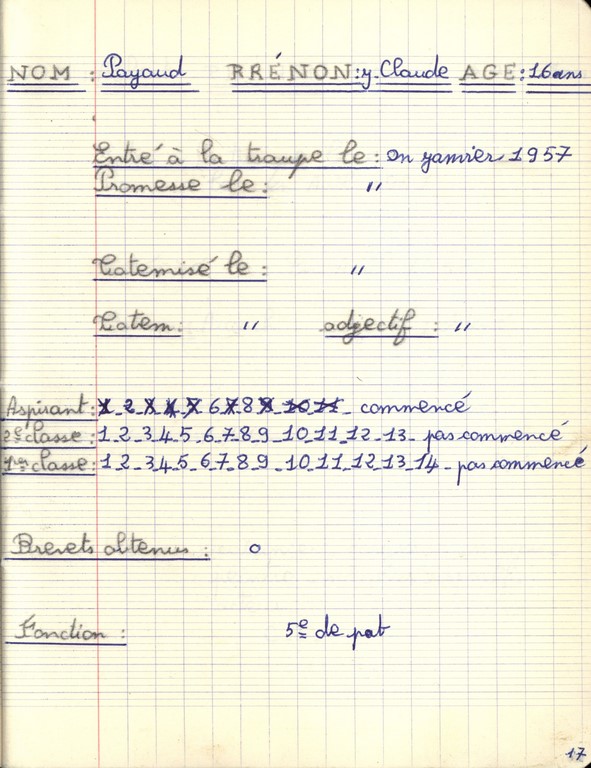 NOM : Payaud PRÉNON : y. Claude AGE : 16 ans
Entré à la troupe le : on yanvier 1957
Promesse le : "
Totemisé le : "
Totem : " adjectif : "
Aspirant : 1_2_3_4_5_6_7_8_9_10_11_ commencé
2e classe : 1_2_3_4_5_6_7_8_9_10_11_12_13_ pas commencé
1re classe : 1_2_3_4_5_6_7_8_9_10_11_12_13_14_ pas commencé
Brevets obtenus : 0
Fonction : 5e de pat
17